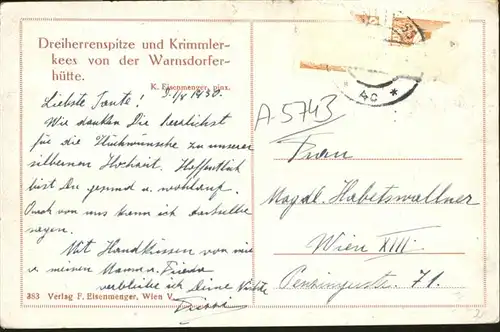 Dreiherrenspitze und Krimmler-
kees von der Warnsdorfer-
hütte.
K. Eisenmenger, pinx.
Liebste Tante!
Wir danken Dir herzlichst
für die Glückwünsche zu unserer
silbernen Hochzeit. Hoffentlich
bist Du gesund u. wohlauf.
Auch von uns kann ich dasselbe
sagen.
Mit Handküssen von mir
u. meinen Mama u.
verbleibe ich Deine Nichte
383 Verlag F. Eisenmenger, Wien V.
A-5743
4c *
Frau
Magdl. Habetswallner
Wien XIII
Penzingerstr. 71.